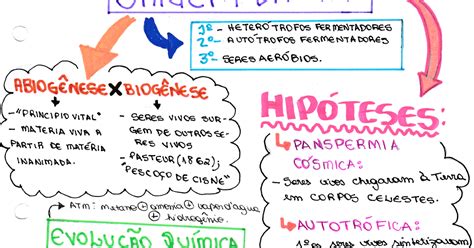 1º - HETERÓTROFOS FERMENTADORES
2º - AUTÓTROFOS FERMENTADORES
3º - SERES AERÓBIOS.
ABIOGÊNESE X BIOGÊNESE
- "PRINCIPIO VITAL"
- MATERIA VIVA A
PARTIR DE MATÉRIA
INANIMADA.
- SERES VIVOS SUR-
GEM DE OUTROS SE-
RES VIVOS
- PASTEUR (1862);
"PESCOÇO DE CISNE"
→ ATM: metano + amônia + vapor d'água
+ hidrogênio.
EVOLUÇÃO QUÍMICA
HIPÓTESES:
↳ PANSPERMIA
CÓSMICA:
- Seres vivos chegaram à Terra
em CORPOS CELESTES.
↳ AUTOTRÓFICA:
1ºs seres vivos sintetizaram